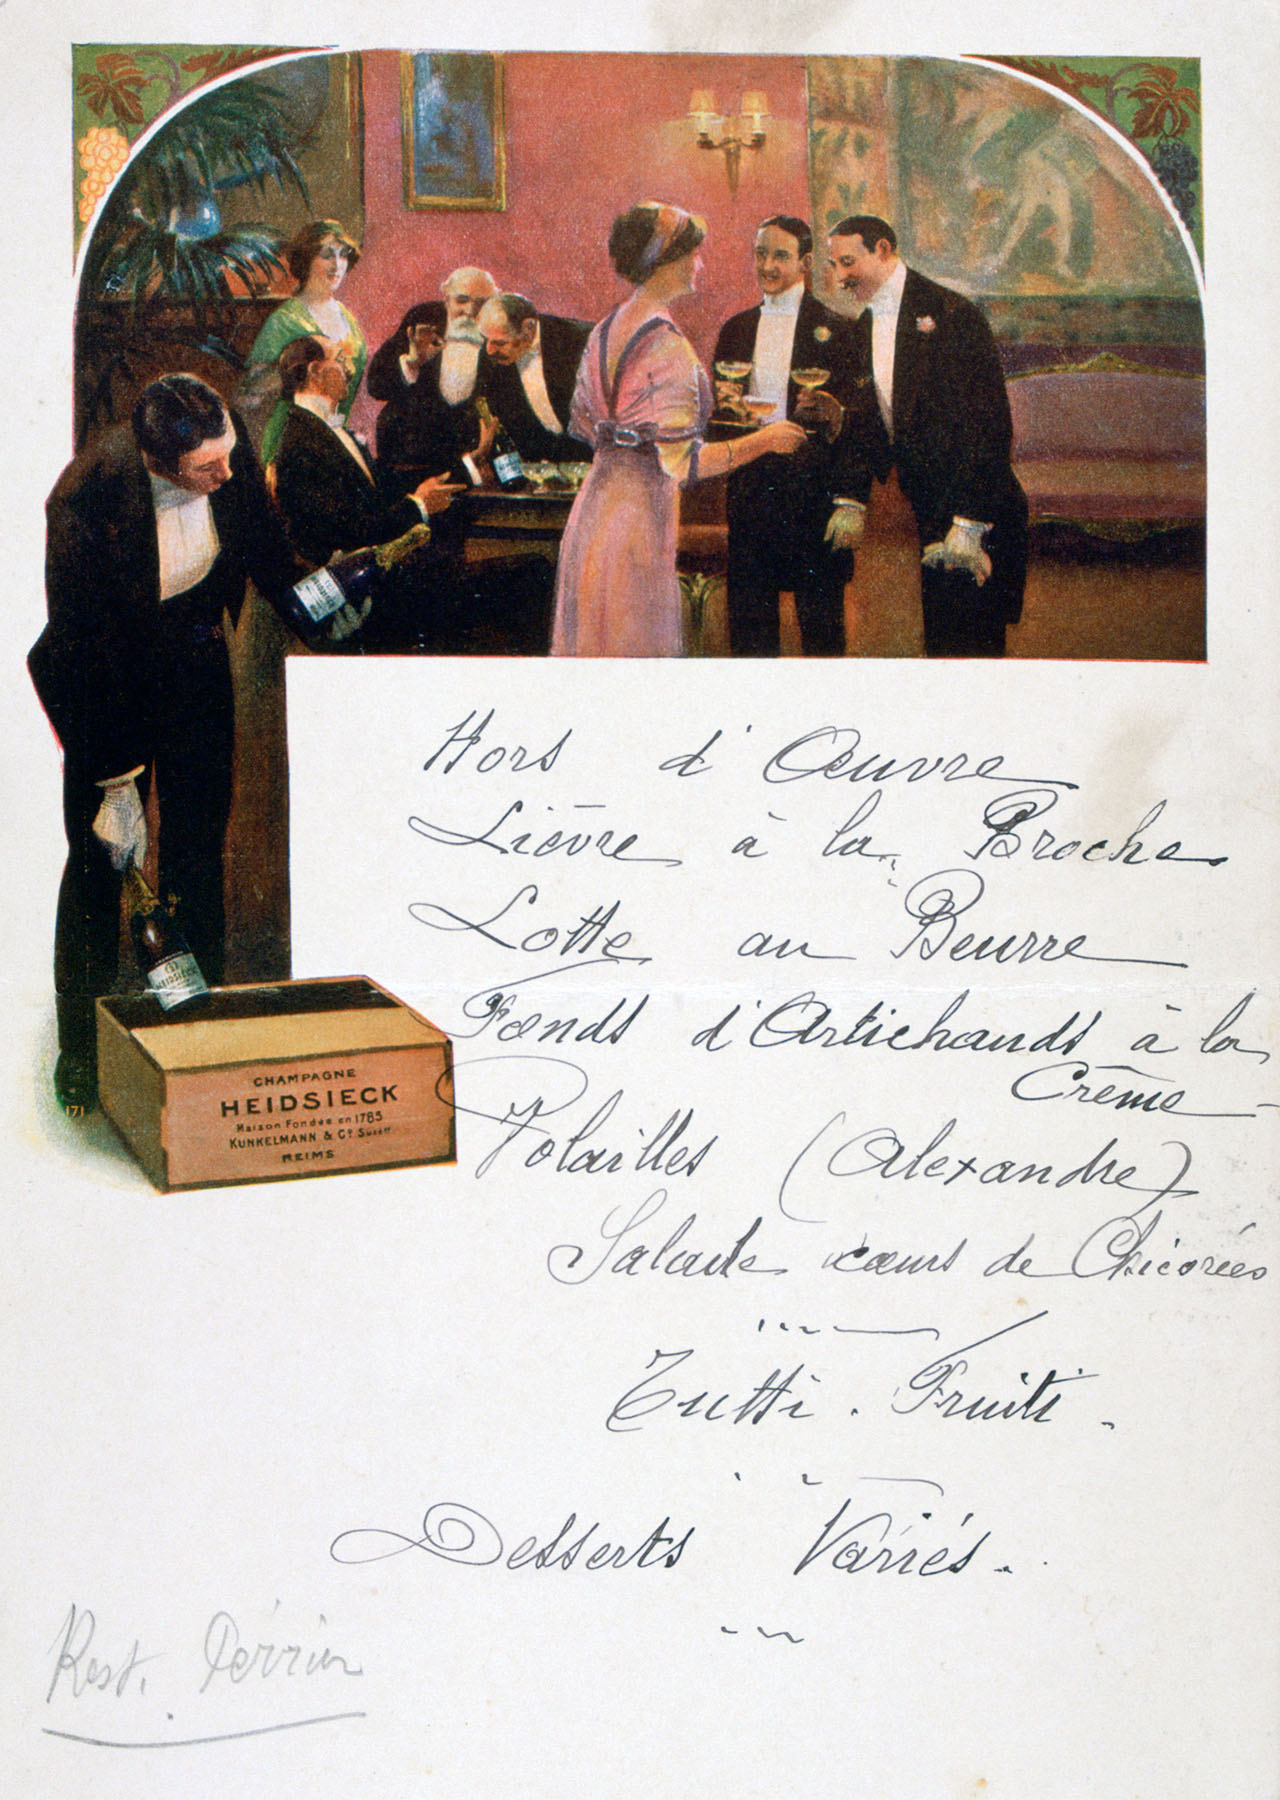 CHAMPAGNE
HEIDSIECK
Maison Fondée en 1785
KUNKELMANN & Cº Succrs
REIMS
171
HEIDSIECK
HEIDSIECK
Hors d'Œuvre
Lièvre à la Broche
Lotte au Beurre
Fonds d'Artichauds à la
Crême
Volailles (Alexandre)
Salade cœurs de Chicorées
Tutti. Fruiti.
Desserts Variés.
Rest. Perrin